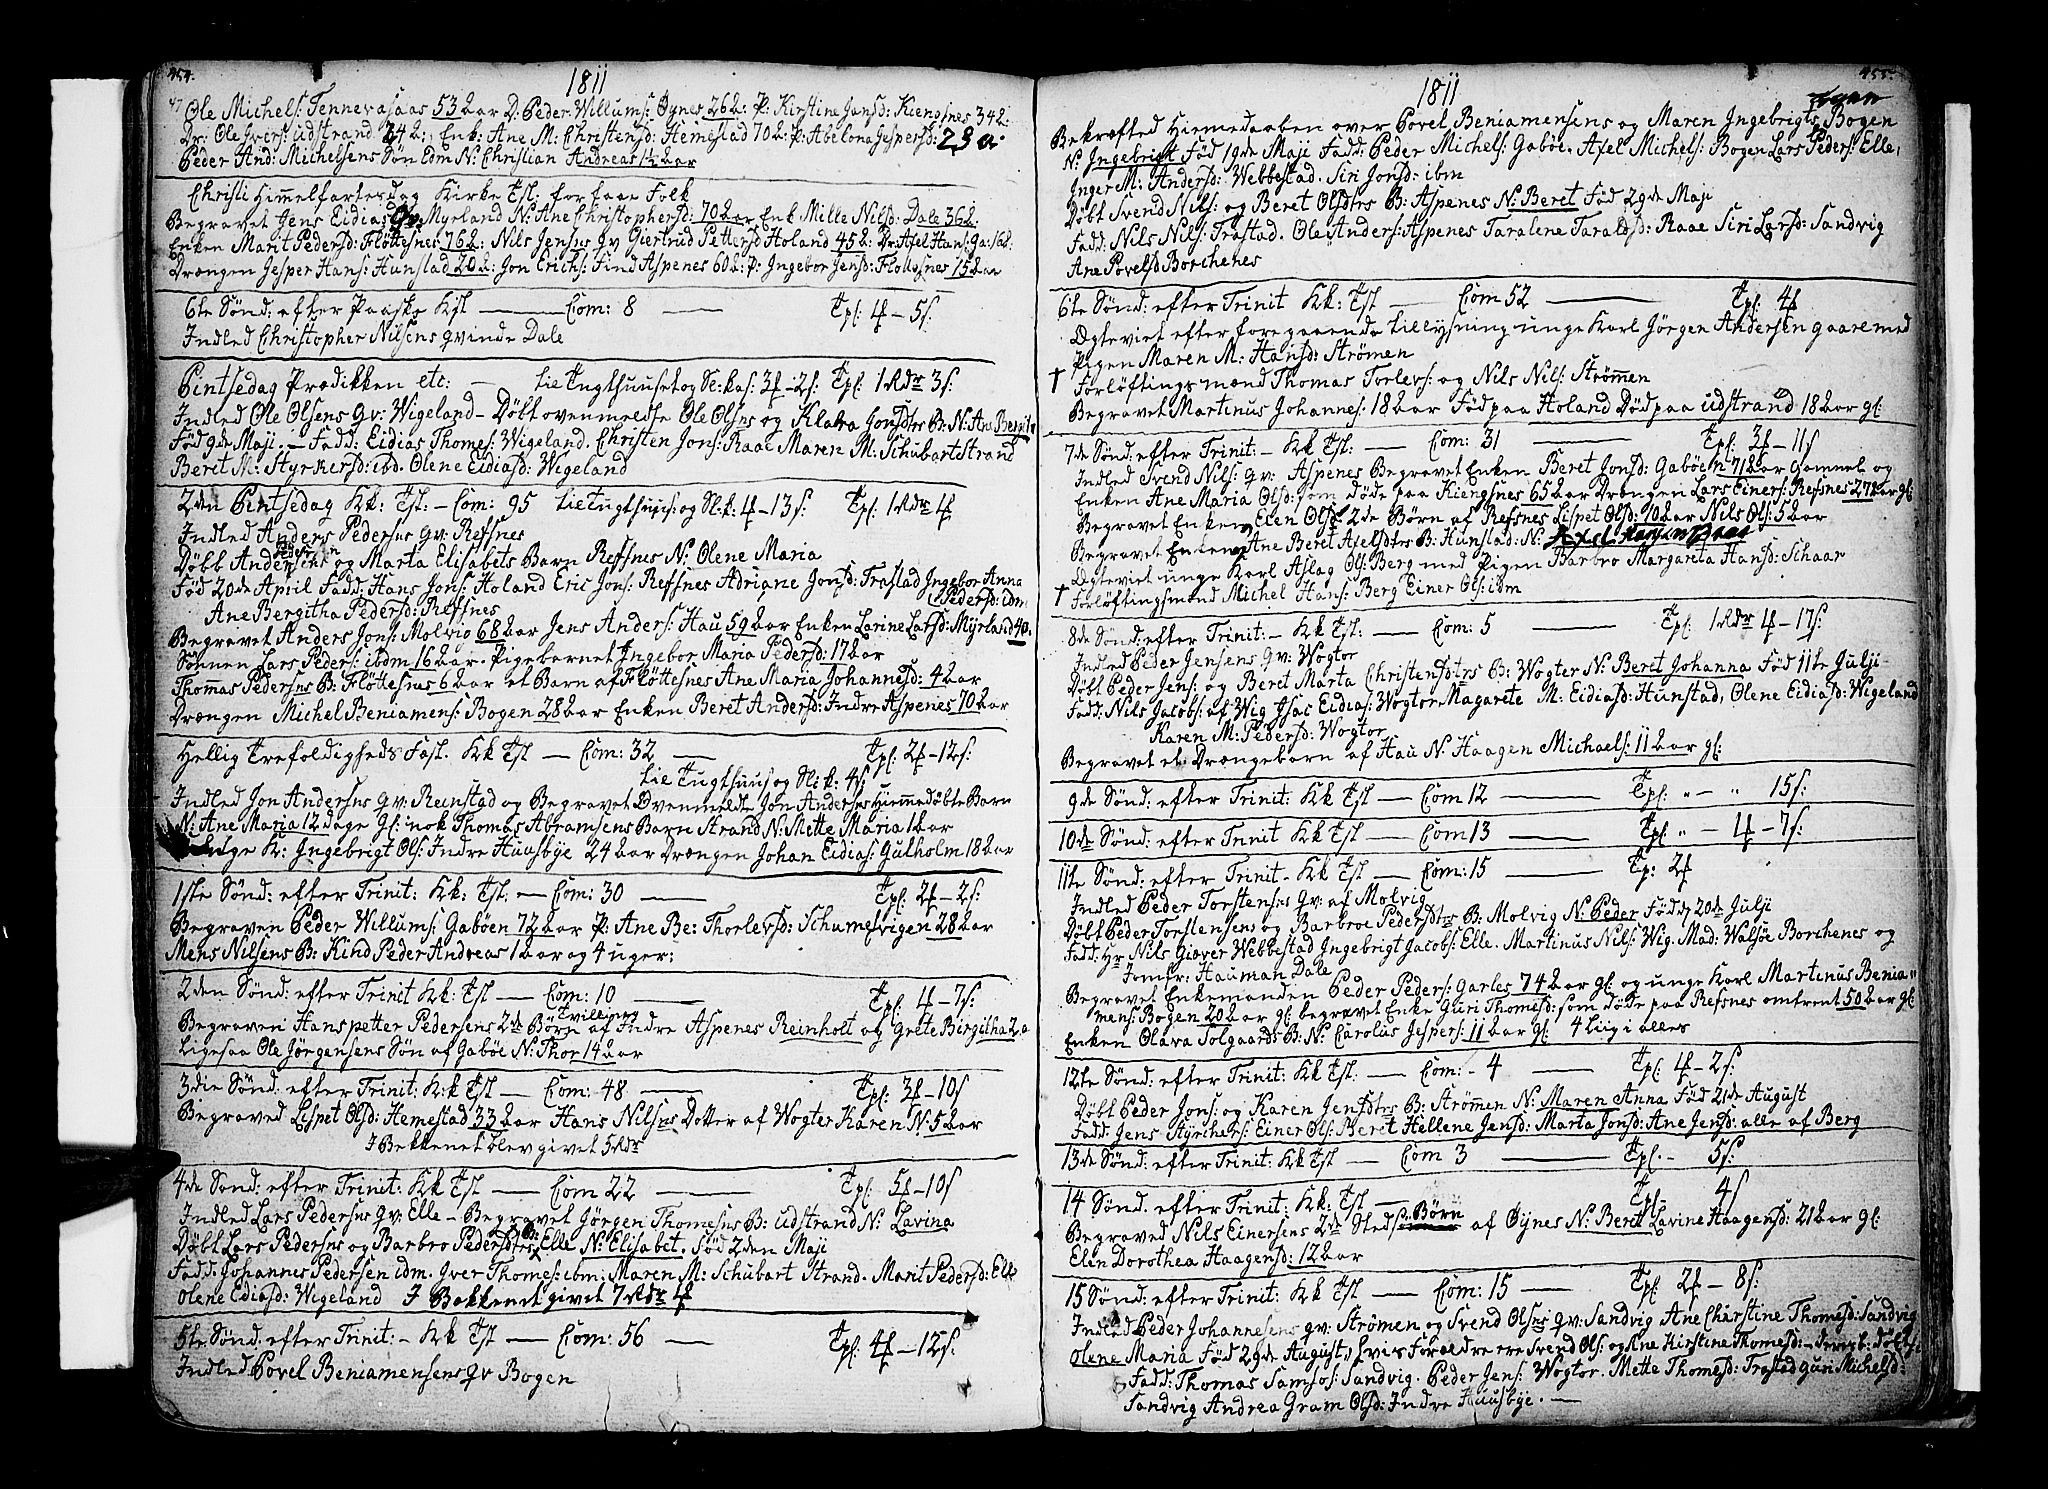 454.
1811
Ole Michels: Tennevasaas 53 2aar D: Peder Willums: Øynes 262: P: Kirstine Jansd: Kiengsnes 342:
Dr: Ole Ivers: udstrand 242: Enk: Ane M: Christensd: Hemestad 702: P: Abelona Jespersd: 23 a.
Peder And: Michelsens Søn Edm N: Christian Andreas 1½ aar
Christi Himmelfartesdag Kirke Tst: for faae Folk
Begravet Jens Eidias Qv: Myrland N: Ane Christophersd: 702aar Enk Mille Nilsd: Dale 362:
Enken Marit Pedersd: Fløttesnes 762: Nils Jensns qv Giertrud Pettersd Holand 452: Dr: Axel Hans: Ga: 162:
Drængen Jesper Hans: Hunstad 202: Jon Erichs: Find Aspenes 602: P: Ingebor Jensd: Flottesnes 152aar
6te Sønd: efter Paaske Kst — Com: 8 — Tpl: 4 — 5s:
Indled Christopher Nilsens qvinde Dale
Pintsedag Prædikken etc: — til Tugthuuset og Sl: kas: 3f — 2s: Tpl: 1Rdr 3s:
Indled Ole Olsens Qv: Wigeland — Døbt ovenmeldte Ole Olsns og Klara Jonsdtrs B: N: Ane Bergite
Fød 9de Maji. — Fadd: Eidias Thomes: Wigeland. Christen Jons: Raae Maren M: Schubart Strand
Beret M: Styrkersd: ibd. Olene Eidiasd: Wigeland
2den Pintsedag Kk: Tst: — Com: 95 til Tugthuus: og Sl: k: 4 — 13s: Tpl: 1Rdr 4
Indled Anders Pedersns Qv: Refsnes
Døbt Anders Pedersen og Marta Elisabets Barn Refsnes N: Olene Maria
Fød 20de April Fadd: Hans Jons: Holand Eric Jons: Refsnes Adriane Jonsd: Trastad Ingebor Anna
Pedersd: idm.
Ane Bergitha Pedersd: Refsnes
Begravet Anders Jons: Molvig 682aar Jens Anders: Hau 592aar Enken Larine Larsd: Myrland 40.
Sønnen Lars Peders: ibdm 162aar. Pigebarnet Ingebor Maria Pedersd: 172aar
Thomas Pedersns B: Fløttesnes 62aar et Barn af Fløttesnes Ane Maria Johannesd: 42aar
Drængen Michel Beniamens: Bogen 282aar Enken Beret Andersd: Indre Aspenes 702aar
Hellig Trefoldigheds Fæst. Kk Tst — Com: 32 — Tpl: 2f — 12s:
til Tugthuus og Sl: k: 4s:
Indled Jon Andersns Qv: Reinstad og Begravet Ovenmeldte Jon Andersns Hiemmedøbte Barn
N: Ane Maria 12 dage gl: nok Thomas Abramsens Barn Strand N: Mette Maria 12aar
unge K: Ingebrigt Ols: Indre Huusbye 242aar Drængen Johan Eidias: Gulholm 182aar
1ste Sønd: efter Trinit: Kk: Tst. — Com: 30 — Tpl: 2f — 2s:
Begraven Peder Willums: Gaböen 722aar P: Ane Be: Thorlevsd: Schumesvigen 282aar
Mens Nilsens B: Kind Peder Andreas 12aar og 4 uger:
2den Sønd: efter Trinit Kk: Tst — Com: 10 — Tpl: 4 — 7s:
Begraven Hanspetter Pedersens 2de Tvillinge Børn af Indre Aspenes Reinholt og Grete Birgitha 2 a
ligesaa Ole Jørgensens Søn af Gabøe N: Thor 142aar
3die Sønd: efter Trinit: K:k Tst — Com: 48 — Tpl: 3f — 10s
Begraved Lispet Olsd: Hemestad 332aar Hans Nilsns Dotter af Wogter Karen N: 52aar
I Bekkenet blev givet 5Rdr
4de Sønd: efter Trinit: Kk Tst — Com 22 — Tpl: 5f — 10s
Indled Lars Pedersns Qv: Elle — Begravet Jørgen Thomesns B: udstrand N: Lavina
Døbt Lars Pedersns og Barbro Pedersdtrs B: Elle N: Elisabet. Fød 2den Maji
Fadd: Johannes Pedersen idm. Iver Thomes: ibm: Maren M: Schubart Strand. Marit Pedersd: Elle
Olene Ediasd: Wigeland I Bekkenet givet 7Rdr 4
5te Sønd: efter Trinit: — Kk Tst — Com: 56 — Tpl: 4f — 12s:
Indled Povel Beniamensens qv Bogen
455.
1811
Bekræfted Hiemedaaben over Povel Beniamensens og Maren Ingebrigts Bogen
N: Ingebrigt Fød 19de Maji Fadd: Peder Michels: Gabøe. Axel Michels: Bogen Lars Peders: Elle,
Inger M: Andersd: Webbestad. Siri Jonsd: ibm
Døbt Svend Nils: og Beret Olsdtrs B: Aspenes N: Beret Fød 29de Maji
Fadd: Nils Nils: Trastad. Ole Anders: Aspenes Taralene Taraldsd: Raae Siri Larsd: Sandvig
Ane Povelsd Borchenes
6te Sønd: efter Trinit Kk: Tst — Com 52 — Tpl: 4f
Ægteviet efter foregaaende tillysning unge Karl Jörgen Andersen gaare med
Pigen Maren M: Hansd: Strömen
† Forløftingsmænd Thomas Torlevs: og Nils Nils: Strømmen
Begravet Martinus Johannes: 182aar Fød paa Holand Død paa udstrand 182aar gl:
7de Sønd: efter Trinit: — Kk Tst: — Com: 31 — Tpl: 3f — 11s
Indled Svend Nils: Qv: Aspenes Begravet Enken Beret Jonsd: Gabøen 712aar Gammel og
Enken Ane Maria Olsd: som døde paa Kiengsnes 652aar Drængen Lars Einers: Refsnes 272aar gl:
Begravet Enken Elen Olsd: 2de Børn af Refsnes Lispet Olsd: 102aar Nils Ols: 52aar
Begravet Enken Ane Beret Axelsdtrs B: Hunstad: N: Axel
Ægteviet unge Karl Aslag Ols: Berg med Pigen Barbro Margareta Hansd: Schaar
† Forløftingsmænd Michel Hans: Berg Einer Ols: ibm
8de Sønd: efter Trinit: — Kk Tst: — Com: 5 — Tpl: 1Rdr 4 — 17s:
Indled Peder Jensens Qv: Wogtor
Døbt Peder Jens: og Beret Marta Christensdtrs B: Wogter N: Beret Johanna Fød 11te Julji —
Fadd: Nils Jacobs: af Wig Isac Eidias: Wogtor Magarete M: Eidiasd: Hunstad, Olene Eidiasd: Wigeland
Karen M: Pedersd: Wogtor
Begravet et Drængebarn af Hau N: Haagen Michaels: 112aar gl:
9de Sønd: efter Trinit: Kk Tst — Com 12 — Tpl: " — " 15s:
10de Sønd: efter Trinit Kk Tst — Com 13 — Tpl: " — 4 — 7s:
11te Sønd: efter Trinit — Kk Tst — Com: 15 — Tp: 2f
Indled Peder Torstensns Qv: af Molvig
Døbt Peder Torstensens og Barbroe Pedersdtrs B: Molvig N: Peder Fødd 20de Julji
Fadd: Hr Nils Giæver Webbestad Ingebrigt Jacobs: Elle. Martinus Nils: Wig. Mad: Walsøe Borchenes og
Jomfr: Hauman Dale
Begravet Enkemanden Peder Peders: Garles 742aar gl: og unge Karl Martinus Benia"
mens: Bogen 202aar gl: begravet Enke Guri Thomesd: som døde paa Refsnes omtrent 502aar gl:
Enken Olava Solgaards B: N: Carolus Jespers: 112aar gl: 4 liig i alles
12te Sønd: efter Trinit: Kk Tst. — Com: - 4 — Tpl: 4 — 2s:
Døbt Peder Jons: og Karen Jensdtrs B: Strømmen N: Maren Anna Fød 21de August
Fadd: Jens Styrchers: Einer Ols: Beret Hellene Jensd: Marta Jonsd: Ane Jensd: alle af Berg
13de Sønd: efter Trinit: Kk Tst — Com 3 — Tpl: - 5s:
14 Sønd: efter Trinit: Kk: Tst — Tpl: — 4s
Begraved Nils Einersens 2de Sted Børn af Øynes N: Beret Lavine Haagensd: 212aar gl:
Elen Dorothea Haagensd: 122aar
15 Sønd: efter Trinit: Kk Tst — Com: 15 — Tpl: 2f — 8s:
Indled Peder Johannesens qv: Strömen og Svend Olsns qv: Sandvig Ane Chirstine Thomesd: Sandvig
Olene Maria Fød 29de August, hvis Forældre ere Svend Ols: og Ane Kirstine Thomesd:
Fadd: Thomas Samsos: Sandvig. Peder Jens: Wogtor. Mette Thomesd: Trastad Gun Michelsd:
Sandvig Andrea Gram Olsd: Indre Huusbye. —